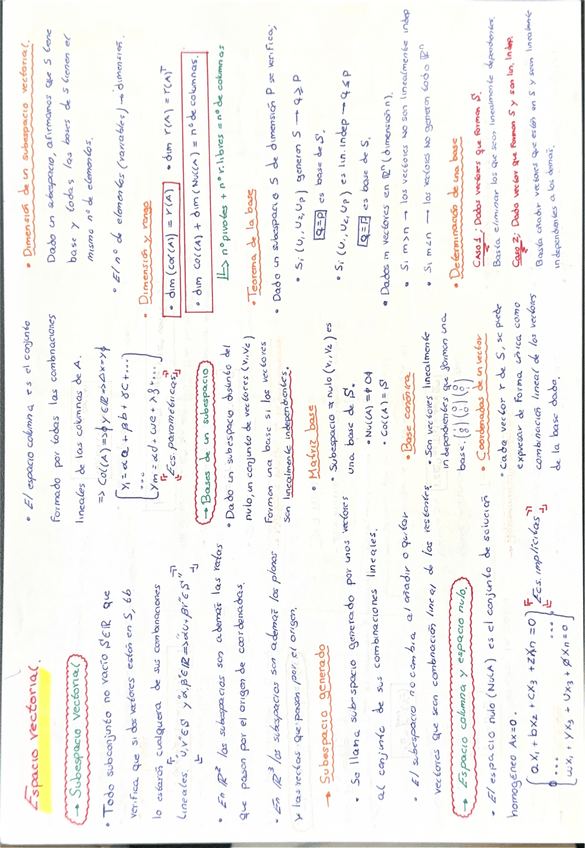 Espacio vectorial.
→ Subespacio vectorial
• Todo subconjunto no vacío S∈ℝ que
verifica que si dos vectores están en S,
lo estarán cualquiera de sus combinaciones
lineales. "u, v ∈ S y α, β ∈ ℝ ⇒ αu + βv ∈ S"
• En ℝ² los subespacios son además las rectas
que pasan por el origen de coordenadas.
• En ℝ³ los subespacios son además los planos
y las rectas que pasan por el origen.
→ Subespacio generado
• Se llama subespacio generado por unos vectores
al conjunto de sus combinaciones lineales.
• El subespacio no cambia al añadir o quitar
vectores que sean combinación lineal de los restantes
→ Espacio columna y espacio nulo.
• El espacio nulo (Nul A) es el conjunto de solución
homogéneo Ax=0.
ax₁ + bx₂ + cx₃ + zxₙ = 0
....
wx₁ + yx₃ + vx₃ + øxₙ = 0
Ecs. implícitas
• El espacio columna es el conjunto
formado por todas las combinaciones
lineales de las columnas de A.
y₁ = αa + βb + γc + ...
...
yₘ = αd + ωe + λg + ...
Ecs. paramétricas
→ Bases de un subespacio
• Dado un subespacio distinto del
nulo, un conjunto de vectores (v₁, v₂)
forman una base si los vectores
son linealmente independientes.
• Matriz base
• Subespacio ≠ nulo (v₁, v₂) es
una base de S.
• Nul(A) = {0}
• Col(A) = S
• Base canónica
• Son vectores linealmente
independientes que forman una
base.
• Coordenadas de un vector
• Cada vector r de S, se puede
expresar de forma única como
combinación lineal de los vectores
de la base dada.
• Dimensión de un subespacio vectorial.
Dado un subespacio, afirmamos que S tiene
base y todas las bases de S tienen el
mismo nº de elementos.
• El nº de elementos (variables) → dimensión.
• Dimensión y rango
• dim (col(A)) = r(A) • dim r(A) = r(A)ᵀ
• dim Col(A) + dim (Nul(A)) = nº de columnas.
↳ nº pivotes + nº v. libres = nº de columnas
• Teorema de la base
• Dado un subespacio S de dimensión P se verifica;
• Si (U₁, U₂, Up) generan S → q ≥ p
q=p es base de S.
• Si (U₁, U₂, Up) es lin. indep → q ≤ p
q=p es base de S.
• Dados m vectores en ℝⁿ (dimensión n).
• Si m>n → los vectores NO son linealmente indep
• Si m<n → los vectores No generan todo ℝⁿ
• Determinación de una base
Caso 1; Dados vectores que forman S.
Basta eliminar los que sean linealmente dependientes.
Caso 2; Dado vector que forman S y son lin. Indep.
Basta añadir vectores que estén en S y sean linealmente
independientes a los demás.